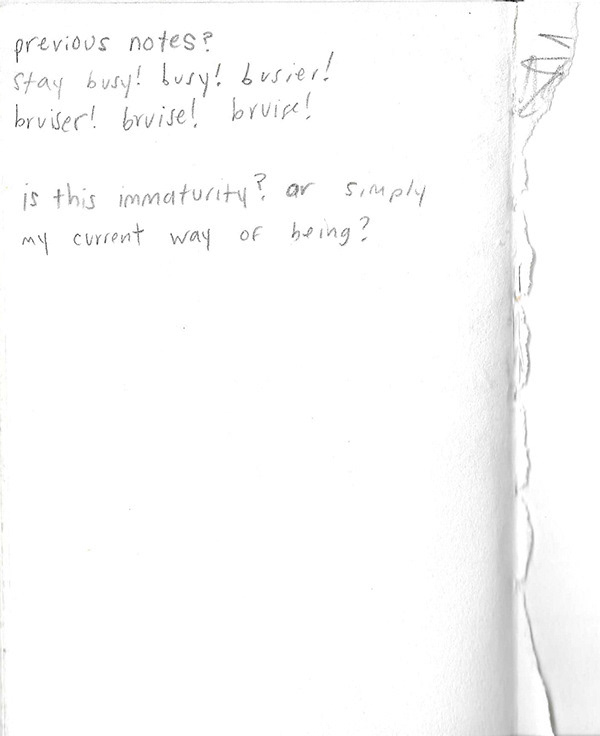 previous notes?
stay busy! busy! busier!
bruiser! bruise! bruise!
is this immaturity? or simply
my current way of being?